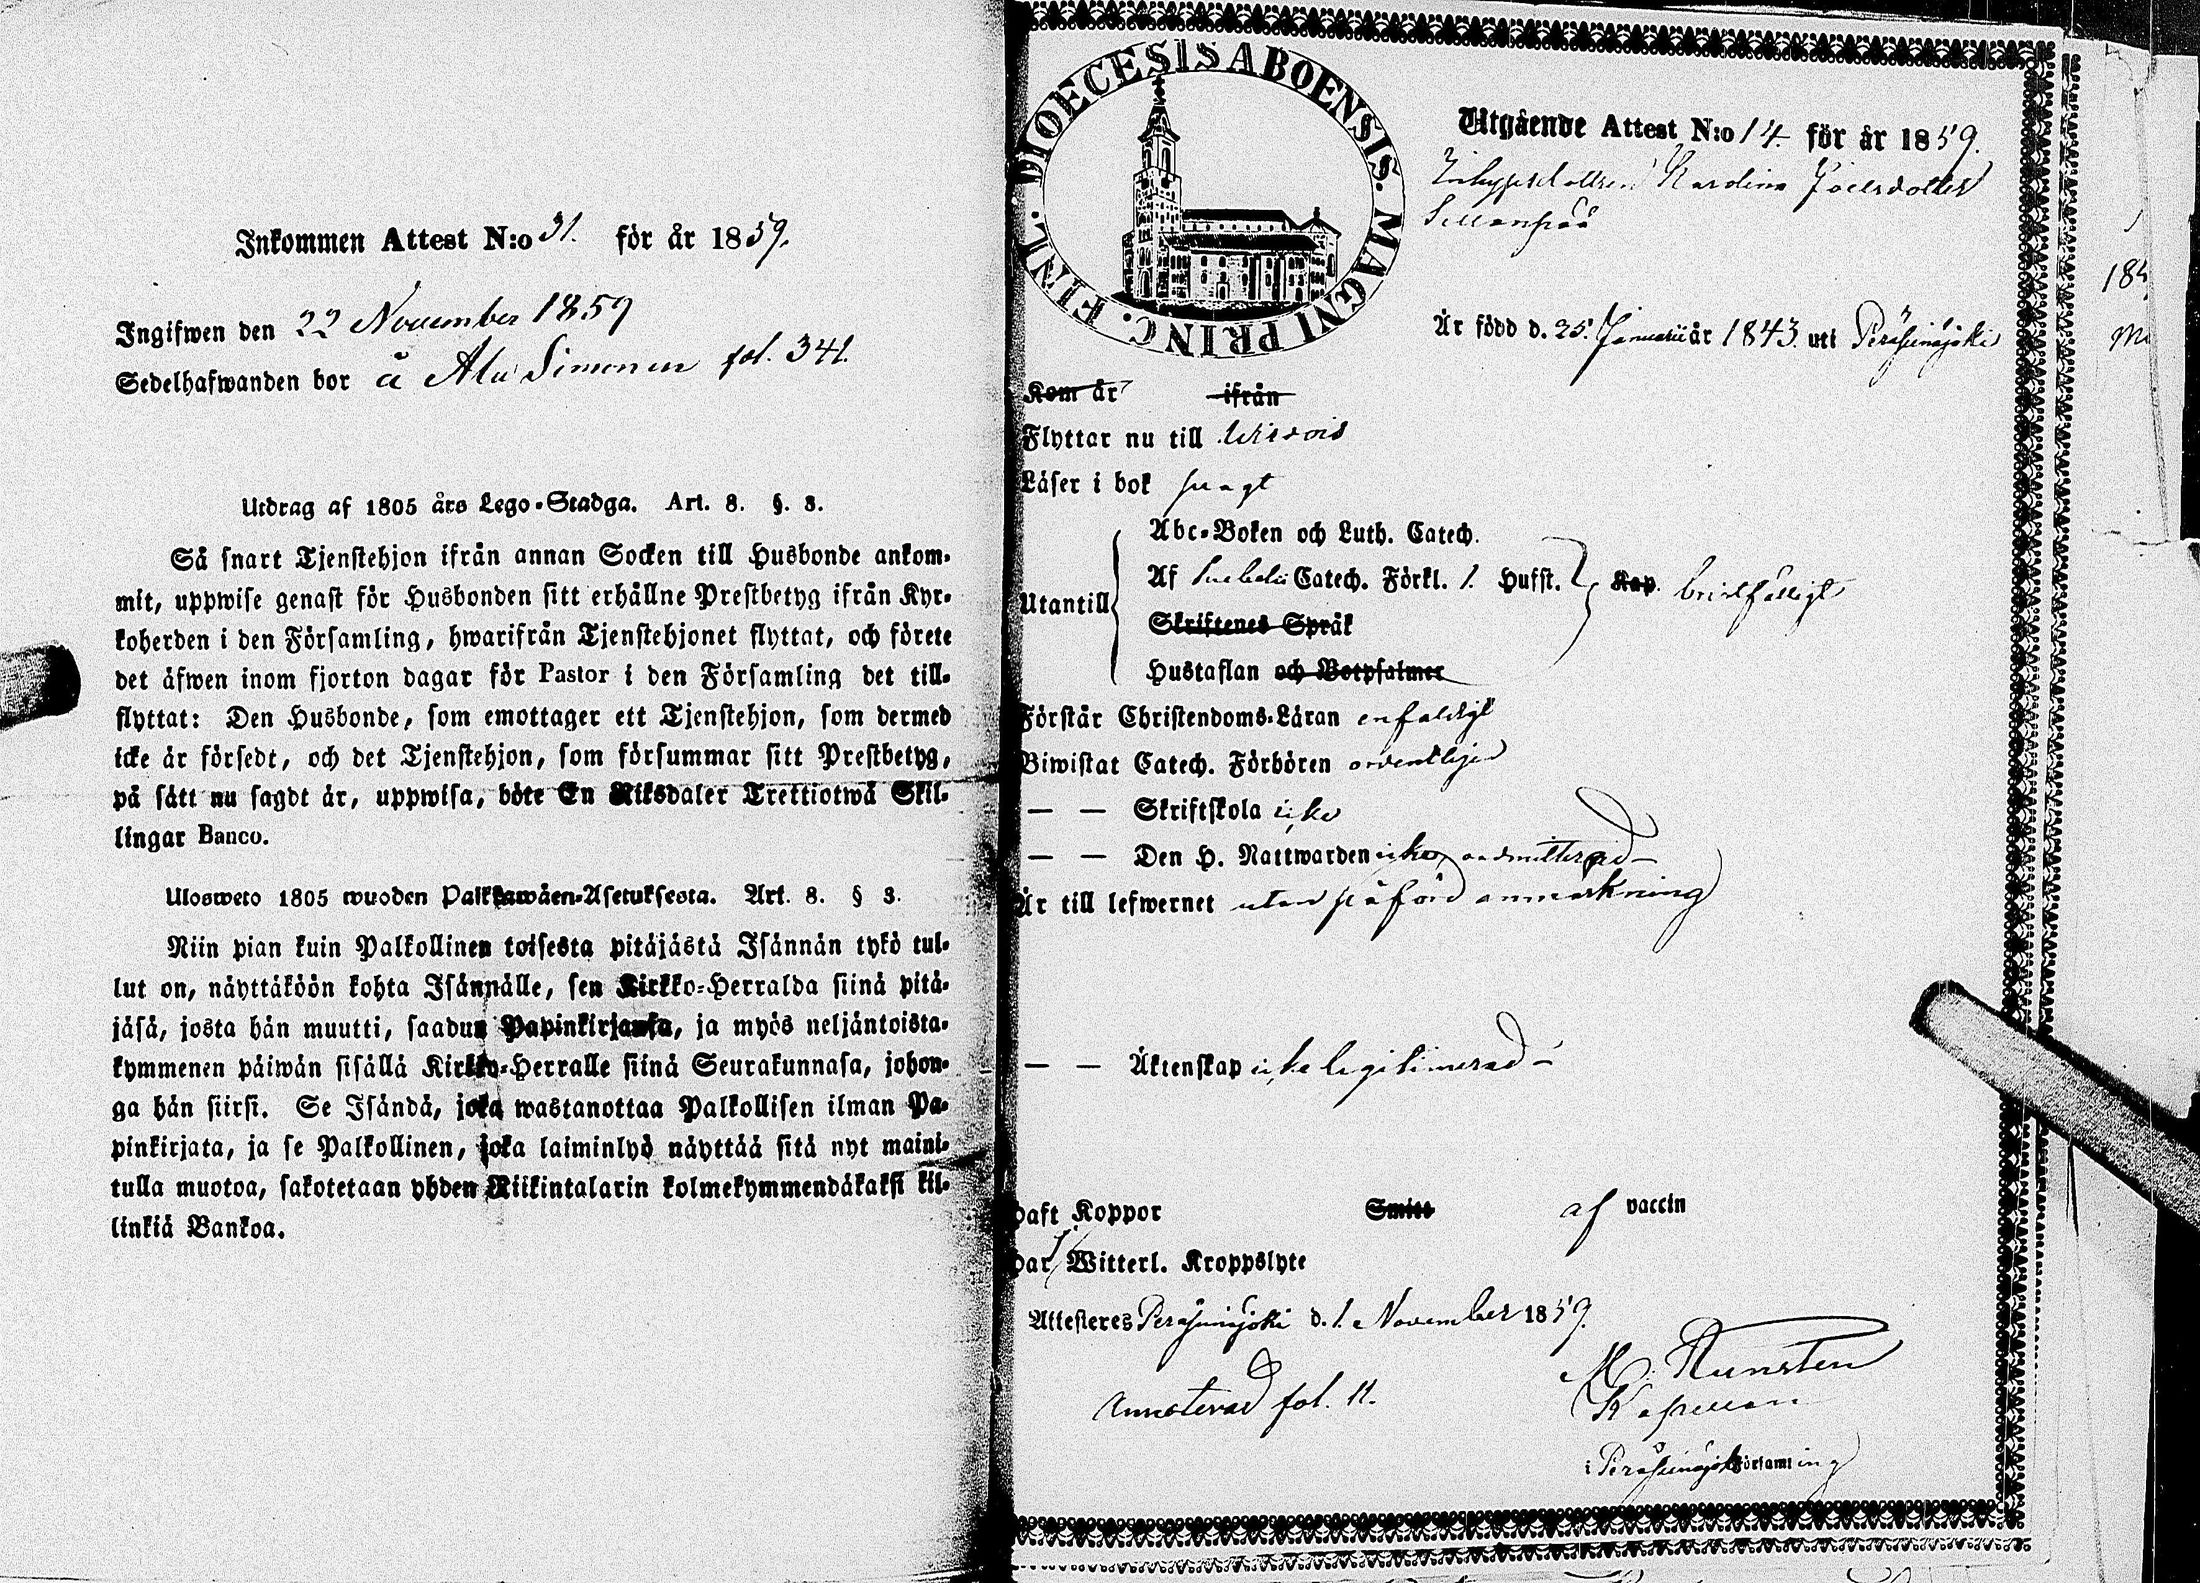 Inkommen Attest N:o 31. för år 1859.
Ingifwen den 22 November 1859
Sedelhafwanden bor å Ala Simonen fol. 341.
Utdrag af 1805 års Lego-Stadga. Art. 8. §. 3.
Så snart Tjenstehjon ifrån annan Socken till Husbonde ankom-
mit, uppwise genast för Husbonden sitt erhållne Prestbetyg ifrån Kyr-
koherden i den Församling, hwarifrån Tjenstehjonet flyttat, och förete
det äfwen inom fjorton dagar för Pastor i den Församling det till-
flyttat: Den Husbonde, som emottager ett Tjenstehjon, som dermed
icke är försedt, och det Tjenstehjon, som försummar sitt Prestbetyg,
på sätt nu sagdt är, uppwisa, böte En Riksdaler Trettiotwå Skil-
lingar Banco.
Ulosweto 1805 wuoden Palkkawäen-Asetuksesta. Art. 8. § 3.
Niin pian kuin Palkollinen toisesta pitäjästä Isännän tykö tul-
lut on, näyttäköön kohta Isännälle, sen Kirkko-Herralda siinä pitä-
jäsä, josta hän muutti, saadun Papinkirjansa, ja myös neljäntoista-
kymmenen päiwän sisällä Kirkko-Herralle siinä Seurakunnasa, johon-
ga hän siirsi. Se Isändä, joka wastanottaa Palkollisen ilman Pa-
pinkirjata, ja se Palkollinen, joka laiminlyö näyttää sitä nyt maini-
tulla muotoa, sakotetaan yhden Riikintalarin kolmekymmendäkaksi kil-
linkiä Bankoa.
DIOECESIS ABOENSIS. MAGNI PRINC. FINL.
Utgående Attest N:o 14. för år 1859.
Karolina Joelsdotter
Sillanpää
Är född d. 25. Januarii år 1843. uti Peräseinäjoki
Kom år ifrån
Flyttar nu till Wirdois
Läser i bok swagt
Abc-Boken och Luth. Catech.
Utantill Af Svebelii Catech. Förkl. 1. Hufst. Kap. bristfälligt
Skriftenes Språk
Hustaflan och Botpsalmer
Förstår Christendoms-Läran enfaldigt
Biwistat Catech. Förhören ordentligen
— — Skriftskola icke
— — Den H. Nattwarden icke admitterad —
Är till lefwernet utan påförd anmärkning
— — Äktenskap icke legitimerad —
Haft Koppor Smitt af vaccin
Har Witterl. Kroppslyte
Attesteres Peräseinäjoki d. 1. November 1859.
Annoterad fol. 11.
Kapellan
i Peräseinäjoki Församling
184